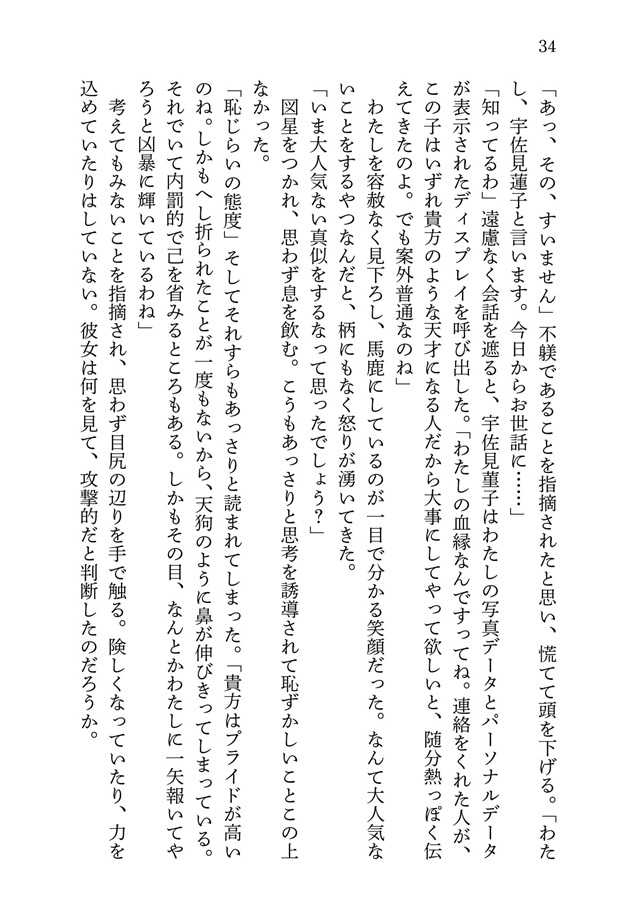 34
「あっ、その、すいません」不躾であることを指摘されたと思い、慌てて頭を下げる。「わた
し、宇佐見蓮子と言います。今日からお世話に……」
「知ってるわ」遠慮なく会話を遮ると、宇佐見菫子はわたしの写真データとパーソナルデータ
が表示されたディスプレイを呼び出した。「わたしの血縁なんですってね。連絡をくれた人が、
この子はいずれ貴方のような天才になる人だから大事にしてやって欲しいと、随分熱っぽく伝
えてきたのよ。でも案外普通なのね」
わたしを容赦なく見下ろし、馬鹿にしているのが一目で分かる笑顔だった。なんて大人気な
いことをするやつなんだと、柄にもなく怒りが湧いてきた。
「いま大人気ない真似をするなって思ったでしょう？」
図星をつかれ、思わず息を飲む。こうもあっさりと思考を誘導されて恥ずかしいことこの上
なかった。
「恥じらいの態度」そしてそれすらもあっさりと読まれてしまった。「貴方はプライドが高い
のね。しかもへし折られたことが一度もないから、天狗のように鼻が伸びきってしまっている。
それでいて内罰的で己を省みるところもある。しかもその目、なんとかわたしに一矢報いてや
ろうと凶暴に輝いているわね」
考えてもみないことを指摘され、思わず目尻の辺りを手で触る。険しくなっていたり、力を
込めていたりはしていない。彼女は何を見て、攻撃的だと判断したのだろうか。